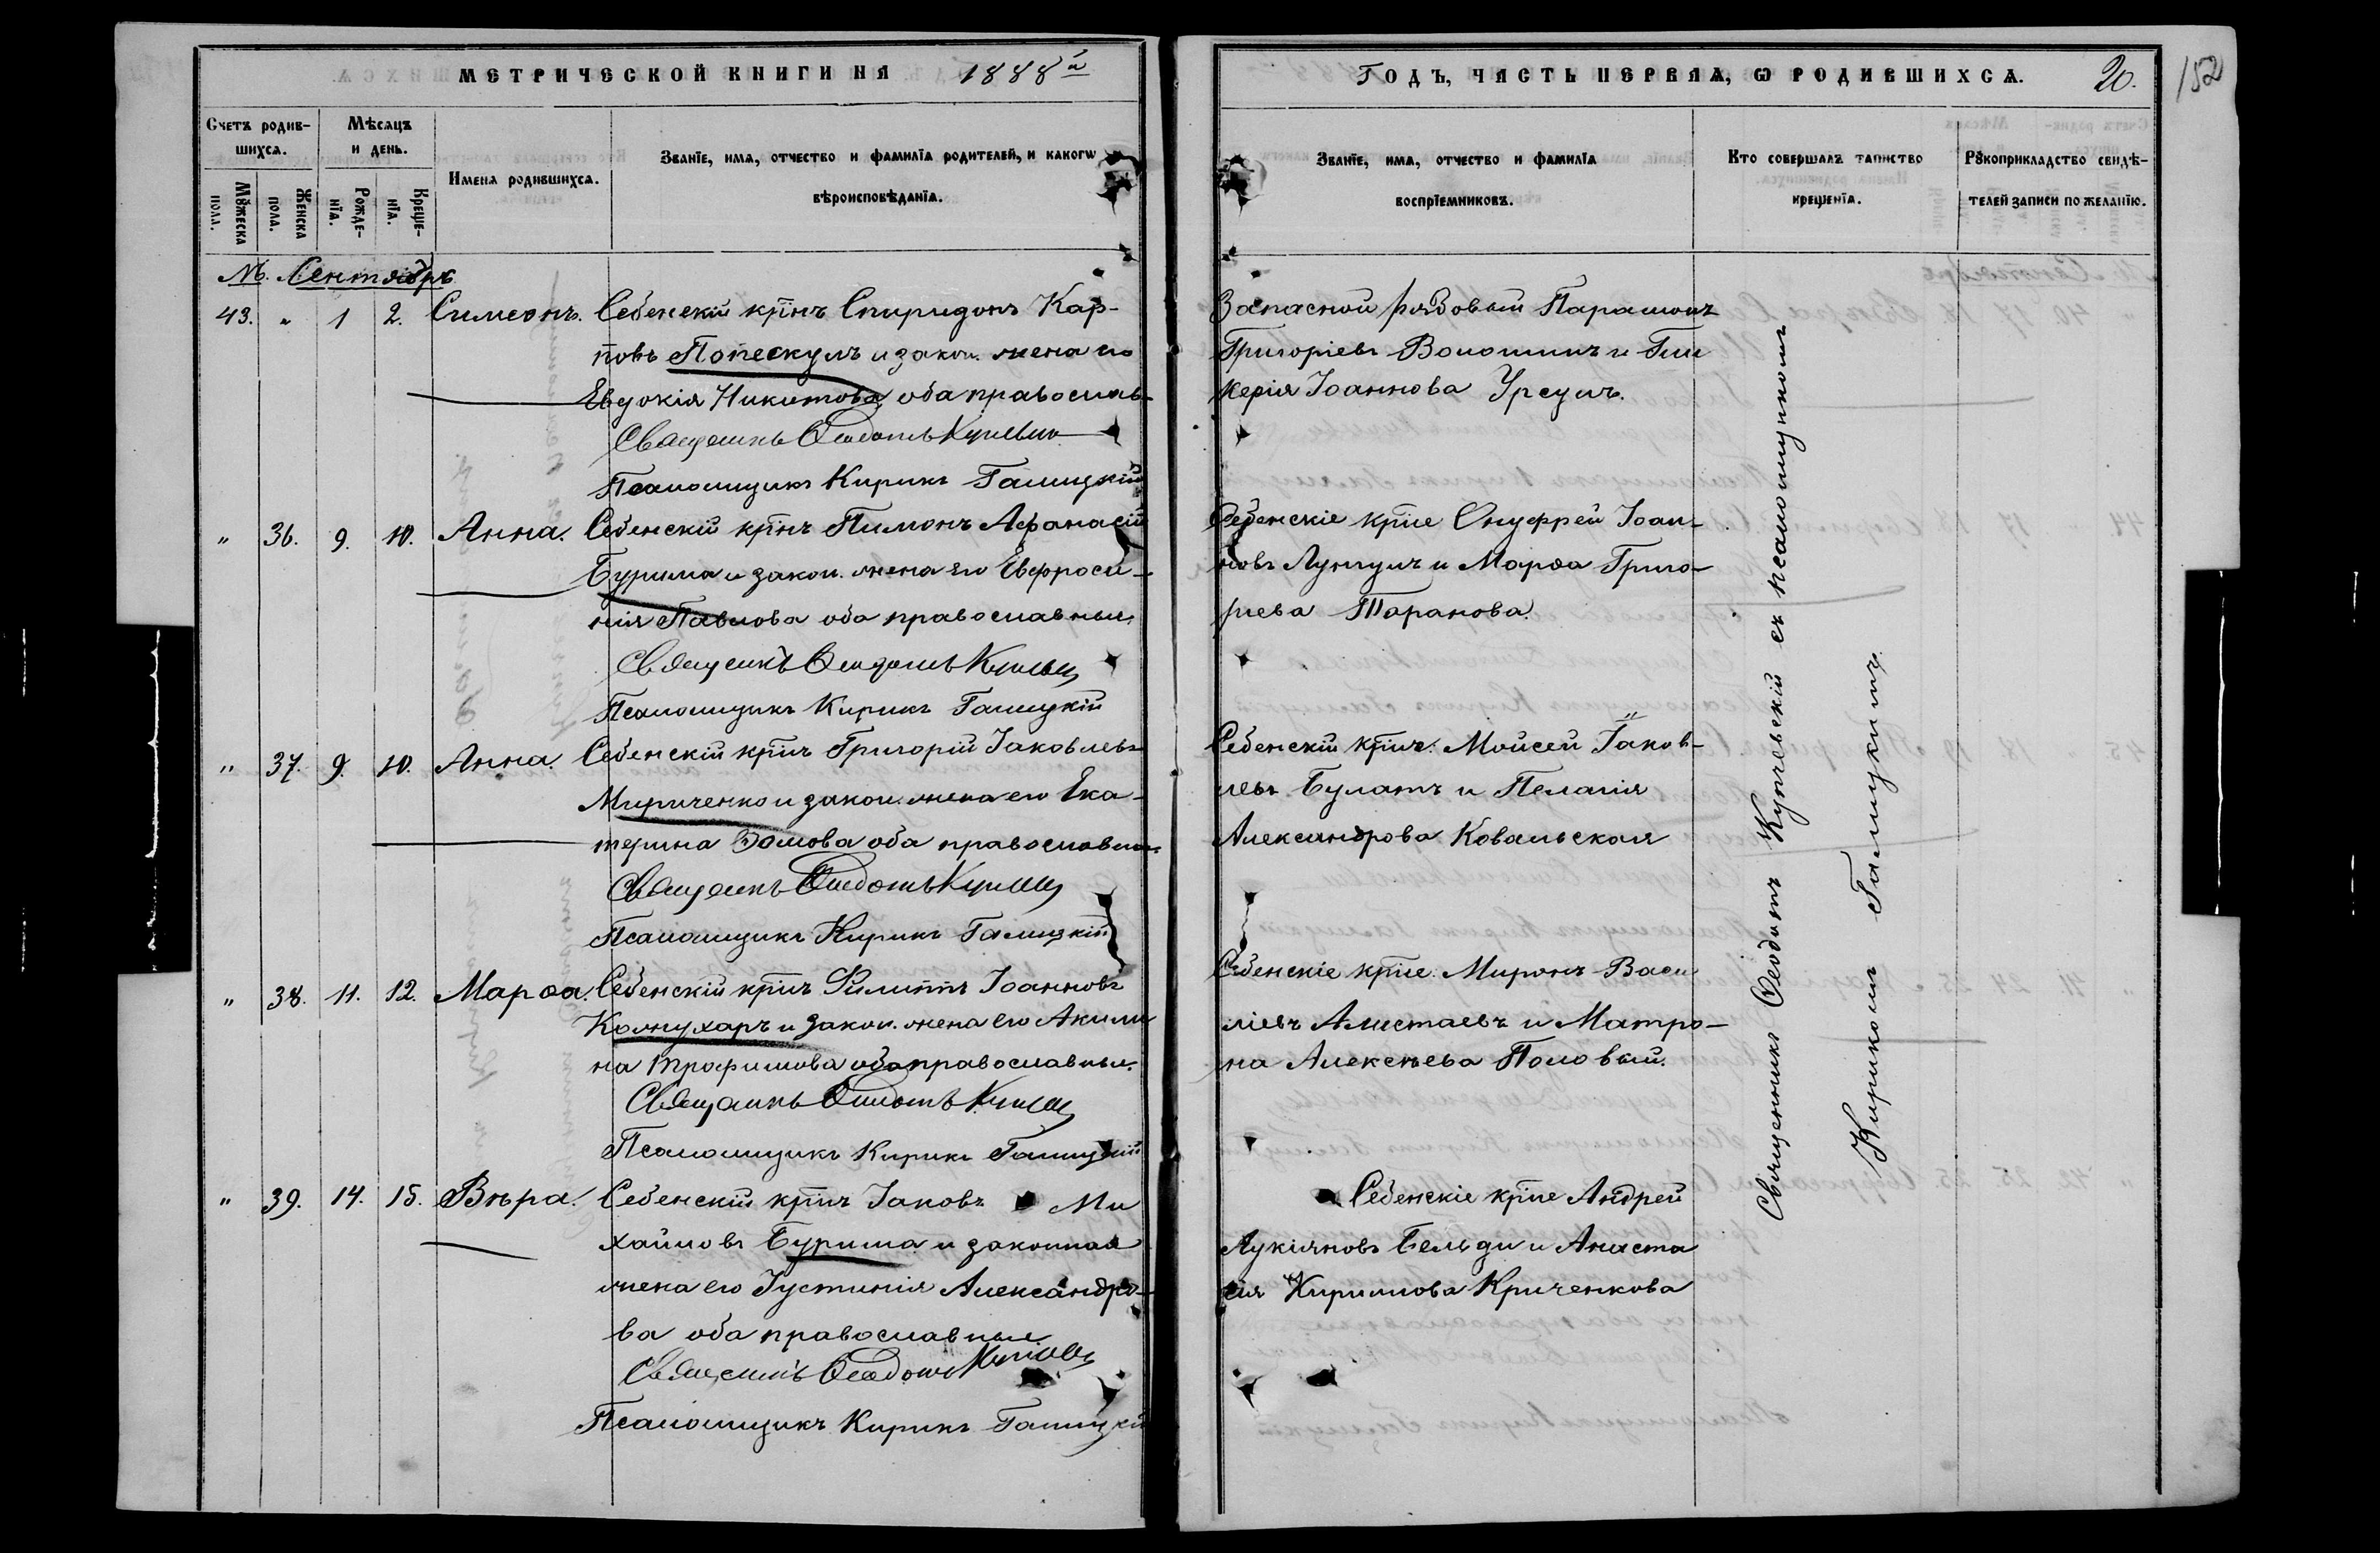 МЕТРИЧЕСКОЙ КНИГИ НА 1888й
ГОДЪ, ЧАСТЬ ПЕРВАЯ, Ѡ РОДИВШИХСѦ. 20.
152
Счетъ родив-
шихсѧ.
Мѣсяцъ
и день.
Мꙋжеска
пола.
Женска
пола.
Рожде-
нїѧ.
Креще-
нїѧ.
Имена родившихсѧ.
Званїе, имѧ, отчество и фамилїѧ родителей, и какогѡ
вѣроисповѣданїѧ.
Званїе, имѧ, отчество и фамилїѧ
воспрїемниковъ.
Кто совершалъ таинство
крещенїѧ.
Рꙋкоприкладство свидѣ-
телей записи по желанїю.
М. Сентябрь
43. „ 1 2. Симеонъ. Себенскій крнъ Спиридонъ Кар-
повъ Попескулъ и закон. жена его
Евдокія Никитова оба православ-
Священикъ Ѳеодотъ
Псаломщикъ Кирикъ Галицкій
Запасной рядовый Парамонъ
Григоріевъ Волошинъ и Гли
керія Іоаннова Урсулъ.
„ 36. 9. 10. Анна. Себенскій крнъ Пимонъ Афанасій
Бурима и закон. жена его Евфроси-
нія Павлова оба православные.
Священикъ Ѳеодотъ
Псаломщикъ Кирикъ Галицкій
Себенскіе крне Онуфрей Іоан-
новъ Лунгулъ и Марѳа Григо-
рьева Таранова.
„ 37. 9. 10. Анна. Себенскій крнъ Григорій Іаковлевъ
Мириченко и закон. жена его Ека-
терина оба православны.
Священикъ Ѳеодотъ
Псаломщикъ Кирикъ Галицкій
Себенскій крнъ. Мойсей Іаков-
левъ Булатъ и Пелагія
Александрова Ковальская
„ 38. 11. 12. Марѳа. Себенскій крнъ Филиппъ Іоанновъ
Кожухаръ и закон. жена его Акили
на Трофимова оба православные.
Священикъ Ѳеодотъ
Псаломщикъ Кирикъ Галицкій
Себенскіе крне. Миронъ Васи
ліевъ и Матро-
на Алексѣева Половый.
„ 39. 14. 15. Вѣра. Себенскій крнъ Іаковъ Ми
хайловъ Бурима и законная
жена его Іустинія Александро-
ва оба православные
Священикъ Ѳеодотъ
Псаломщикъ Кирикъ Галицкій
Себенскіе крне Андрей
Лукіяновъ Бельди и Анаста
сія Кирилова Криченкова
Священникъ Ѳеодотъ Купчевскій съ псаломщикомъ
Кирикомъ Галицкимъ.